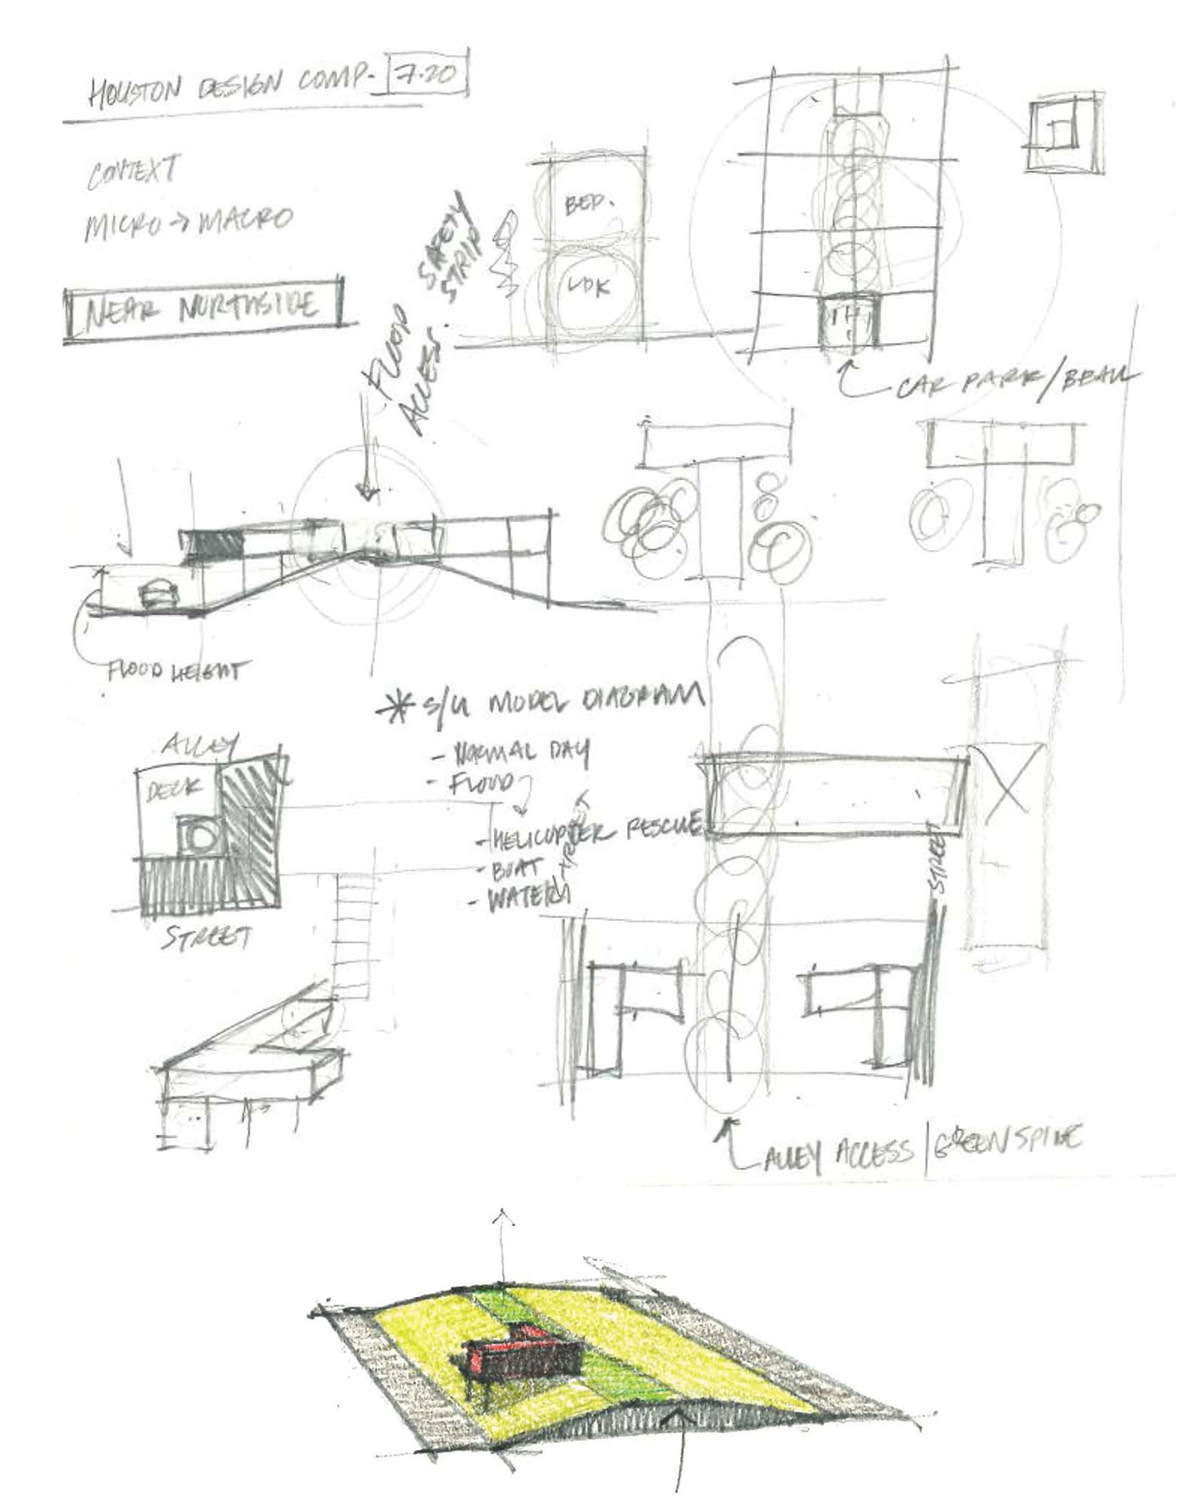 HOUSTON DESIGN COMP- 7.20
CONTEXT
MICRO → MACRO
NEAR NORTHSIDE
FLOOD SAFETY
ACCES. STRIP
BED.
LDK
CAR PARK/BEAM
FLOOD HEIGHT
* S/U MODEL DIAGRAM
- NORMAL DAY
- FLOOD
- HELICOPTER RESCUE
- BOAT
- WATER
ALLEY
DECK
STREET
STREET
STREET
ALLEY ACCESS/GREEN SPINE